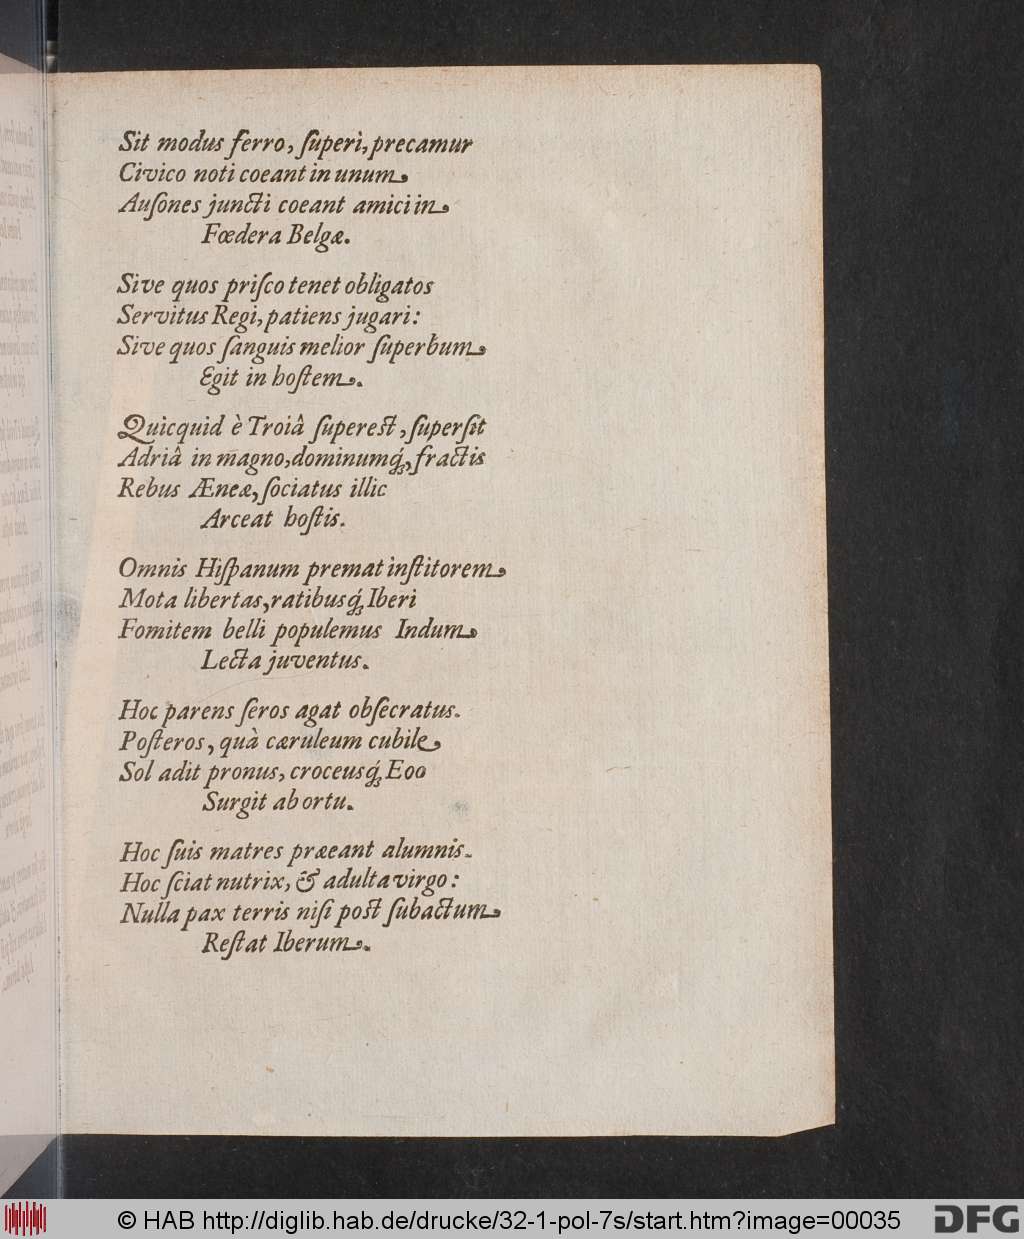 Sit modus ferro, ſuperi, precamur
Civico noti coeant in unum
Auſones juncti coeant amici in
Fœdera Belgæ.
Sive quos priſco tenet obligatos
Servitus Regi, patiens jugari:
Sive quos ſanguis melior ſuperbum
Egit in hoſtem.
Quicquid è Troiâ ſupereſt, ſuperſit
Adriâ in magno, dominumq́;, fractis
Rebus Æneæ, ſociatus illic
Arceat hoſtis.
Omnis Hiſpanum premat inſtitorem
Mota libertas, ratibusq́; Iberi
Fomitem belli populemus Indum
Lecta juventus.
Hoc parens ſeros agat obſecratus.
Poſteros, quà cæruleum cubile
Sol adit pronus, croceusq́; Eoo
Surgit ab ortu.
Hoc ſuis matres præeant alumnis.
Hoc ſciat nutrix, & adulta virgo:
Nulla pax terris niſi poſt ſubactum
Reſtat Iberum.
© HAB http://diglib.hab.de/drucke/32-1-pol-7s/start.htm?image=00035
DFG